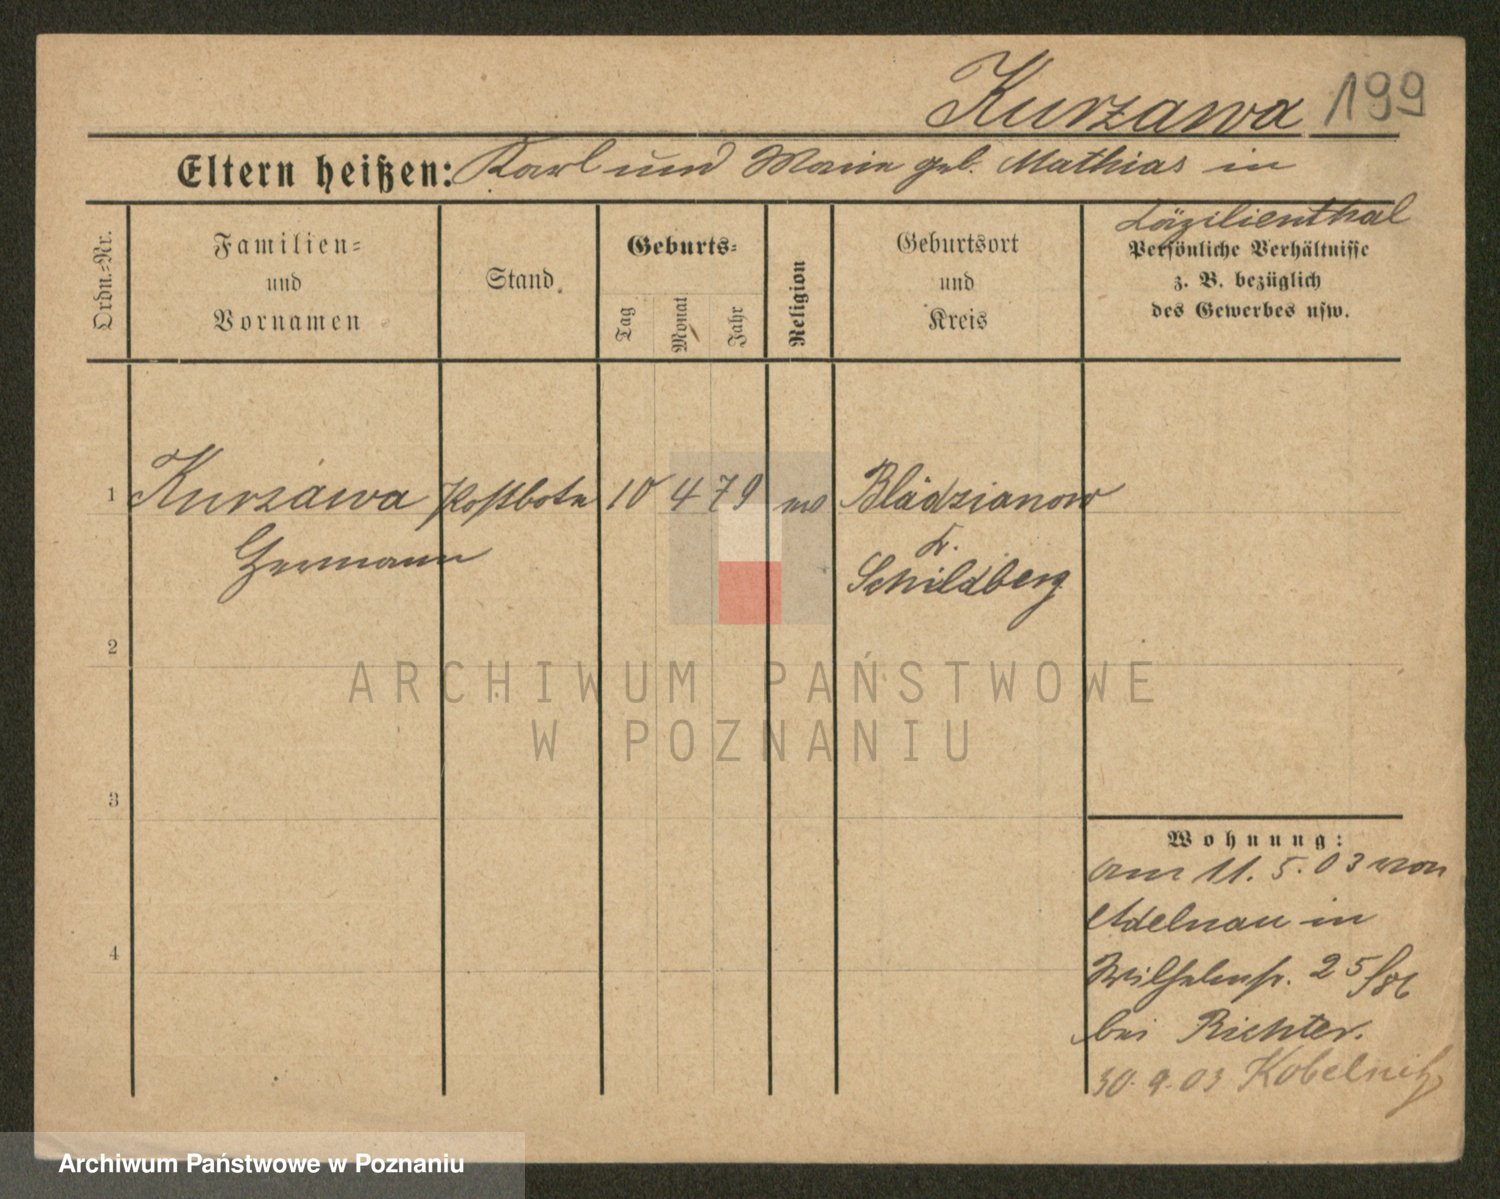 Kurzawa 199
Eltern heißen: Karl und Marie geb. Mathias in
Cäzilienthal
Ordn.-Nr.
Familien-
und
Vornamen
Stand
Geburts-
Tag
Monat
Jahr
Religion
Geburtsort
und
Kreis
Persönliche Verhältnisse
z. B. bezüglich
des Gewerbes usw.
1 Kurzawa Postbote 10 4 79 Bladzianow
Hermann
K.
Schildberg
2
ARCHIWUM PAŃSTWOWE
W POZNANIU
3
Wohnung:
am 11. 5. 03 von
Adelnau in
4
Wilhelmstr. 25
bei Richter.
30. 9. 03 Kobelnitz
Archiwum Państwowe w Poznaniu